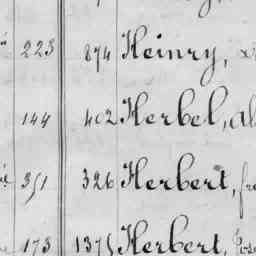 223 874 Heinry,
144 402 Herbel, Al
351 326 Herbert, fr
173 1375 Herbert,